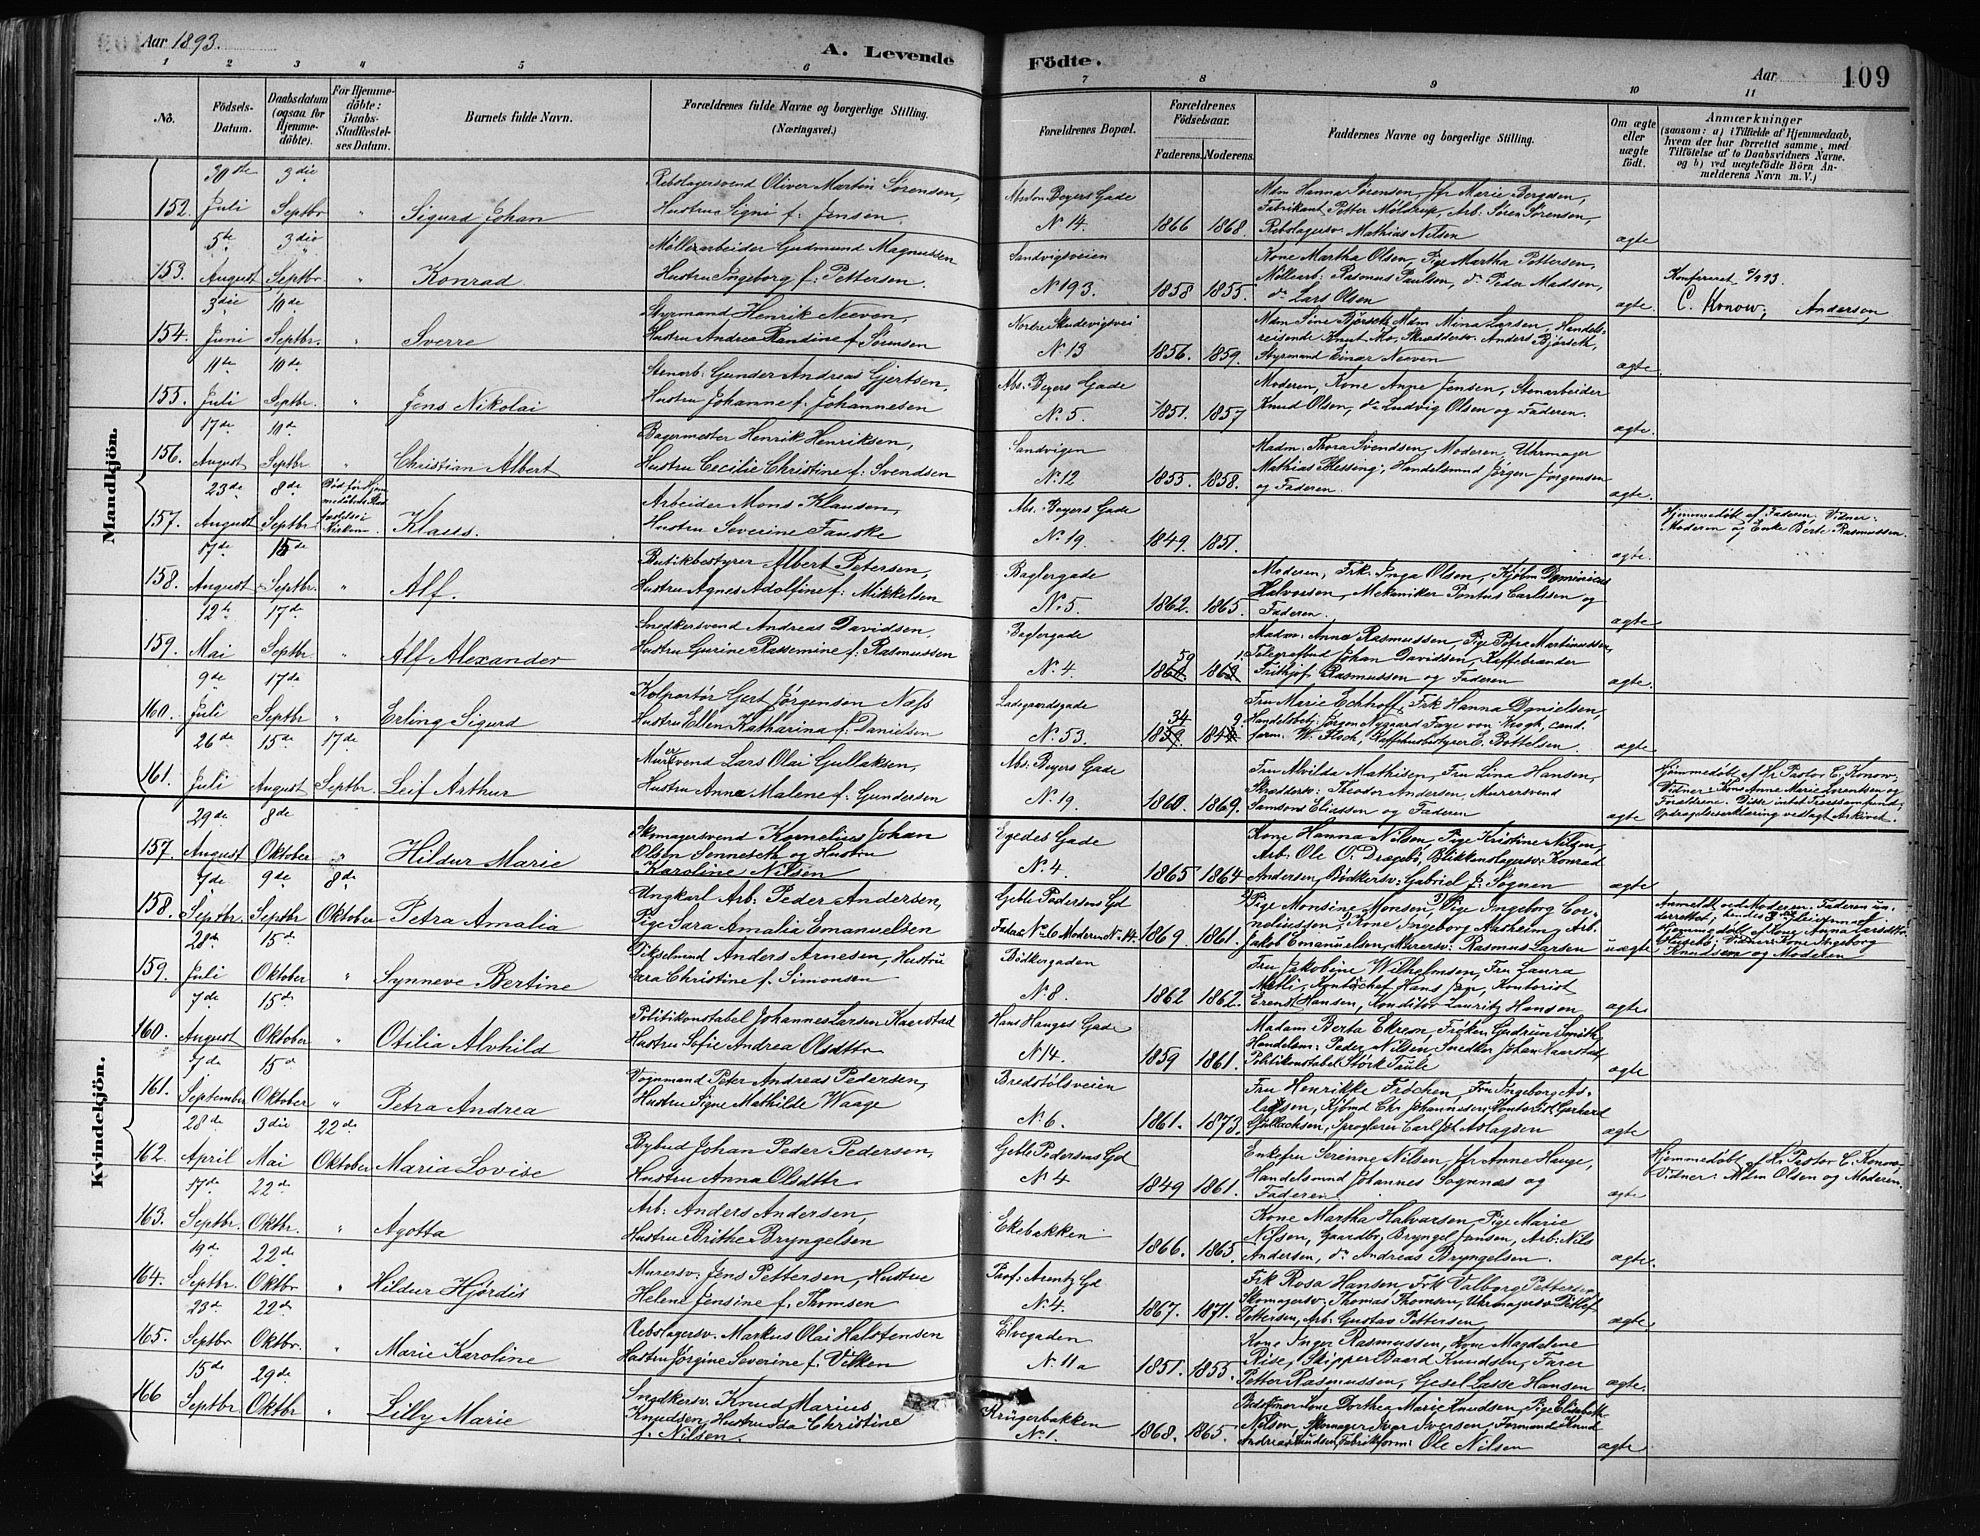 Aar 1893.
A. Levende Födte.
Aar 109
1 2 3 4 5 6 7 8 9 10 11
No.
Födsels-Datum.
Daabsdatum (ogsaa for Hjemmedöbte).
For Hjemmedöbte: Daabs-Stadfæstelses Datum.
Barnets fulde Navn.
Forældrenes fulde Navne og borgerlige Stilling. (Næringsvei.)
Forældrenes Bopæl.
Forældrenes Födselsaar.
Faderens. Moderens.
Faddernes Navne og borgerlige Stilling.
Om ægte eller uægte födt.
Anmærkninger
(saasom: a) i Tilfælde af Hjemmedaab, hvem der har forrettet samme, med Tilföielse af to Daabsvidners Navne, og b) ved uægtefödte Börn Anmelderens Navn m. V.)
Mandkjön.
152. 30te Juli 3die Septbr " Sigurd Johan
Rebslagersvend Oliver Martin Sørensen,
Hustru Signi f. Jensen.
Absalon Beyers Gade
N. 14. 1866 1868.
Mdm Hanna Sørensen, Jfr Marie Bergesen,
Fabrikant Petter Møldrup, Arb: Søren Sørensen,
Rebslagersv. Mathias Nilsen
ægte
153. 5te August 3die Septbr " Konrad
Møllerarbeider Gudmund Magnussen
Hustru Ingeborg f. Pettersen.
Sandvigsveien
N. 193. 1858 1855.
Kone Martha Olsen, Pige Martha Pettersen,
Møllearb: Rasmus Paulsen, do Peder Madssen,
do Lars Olsen
ægte.
Konfereret
C. Konow; Andersen,
154. 3die Juni 10de Septbr. " Sverre
Styrmand Henrik Neeven,
Hustru Andrea Randine f. Sørensen
Nordre Skudevigsvei
N. 13 1856. 1859.
Mdm Sine Bjørseth, Mdm Mina Larsen, Handels-
reisende Knut Mo, Skræddersv. Anders Bjørseth,
Styrmand Einar Neeven
ægte.
155. 11te Juli 10de Septbr. " Jens Nikolai
Stenarb: Gunder Andreas Gjertsen,
Hustru Johanne f. Johannesen
Abs. Beyers Gade
N. 5. 1851. 1857
Moderen, Kone Anne Jensen, Stenarbeider
Knud Olsen, do Ludvig Olsen og Faderen.
ægte.
156. 17de August 10de Septbr " Christian Albert
Bagermester Henrik Henriksen,
Hustru Cecilie Christine f. Svendsen
Sandvigen
N. 12 1855. 1858.
Madm. Thora Svendsen, Moderen, Uhrmager
Mathias Blessing, Handelsmnd Jørgen Jørgensen
og Faderen.
ægte.
157. 23de August 8de Septbr Klaus.
Arbeider Mons Klausen,
Hustru Severine Fauske
Abs. Beyers Gade
N. 19. 1849. 1851.
ægte.
Hjemmedøbt af Faderen. Vidner:
Moderen og Enke Berte Rasmussen.
158. 17de August 15de Septbr. " Alf.
Butikbestyrer Albert Petersen,
Hustru Agnes Adolfine f. Mikkelsen
Baglergade
N. 5. 1862. 1865.
Moderen, Frk. Inga Olsen, Kjøbm Dominicus
Halvorsen, Mekaniker Pontus Carlssen og
Faderen.
ægte
159. 12te Mai 17de Septbr. " Alf Alexander
Snedkersvend Andreas Davidsen,
Hustru Gurine Rassemine f. Rasmussen
Baglergade
N. 4.
Madm: Anna Rasmussen, Pige Petra Martinussen,
Telegrafbud Johan Davidssen, Kaffebrænder
Frithjof Rasmussen og Faderen
ægte.
160. 9de Juli 17de Septbr " Erling Sigurd
Kolportør Gert Jørgensen Nass
Hustru Ellen Katharina f. Danielsen
Ladegaardsgade
N. 53.
Fru Marie Eckhoff, Frk Hanna Danielsen,
Handelsbetj: Jørgen Nygaard Faye von Krogh, cand.
farm. W. Floch, Kaffehusbestyrer E. Bøttelsen.
ægte
161. 26de Juli 15de August 17de Septbr. Leif Arthur
Mursvend Lars Olai Gullaksen,
Hustru Anna Malene f. Gundersen
Abs. Beyers Gade
N. 19. 1860. 1869.
Fru Alvilda Mathisen, Fru Lina Hansen,
Skræddersv: Theodor Andersen, Murersvend
Samson Eliassen og Faderen
ægte
Hjemmedøbt af Hr Pastor C. Konow.
Vidner: Kone Anne Marie Lorentsen og
Forældrene. Disse intet Troessamfund;
Opdragelseserklæring vedlagt Arkivet.
Kvindekjön.
157. 29de August 8de Oktober " Hildur Marie
Skomagersvend Kornelius Johan
Olsen Senneseth og Hustru
Karoline Nilsen
Egedes Gade
N. 4. 1865 1864
Kone Hanna Nilsen, Pige Kristine Nilsen,
Arb. Ole O. Dragebø, Blikkenslagersv: Konrad
Andersen, Bødkersv: Gabriel J. Sognen
ægte
158. 7de Septbr. 9de Septbr 8de Oktober Petra Amalia
Ungkarl Arb. Peder Andersen,
Pige Sara Amalia Emanuelsen
Geble Pedersens Gd
Faderen N. 6 Moderen N. 14. 1869. 1861.
Pige Monsine Monsen, Pige Ingeborg Cor-
neliussen, Kone Ingeborg Aarheim, Arb.
Jakob Emanuelsen, Murersv: Rasmus Larsen
uægte
Anmeldt ved Moderen. Faderen un-
derrettet; hendes 3die Leiermaal.
Hjemmedøbt af Kone Anna Larsdtr
Husebø; Vidner: Kone Ingeborg
Knudsen og Moderen
159. 28de Juli 15de Oktober " Synneve Bertine
Tikselmand Anders Arnesen, Hustru
Sara Christine f. Simonsen
Bødkergaden
N. 8. 1862 1862.
Fru Jakobine Wilhelmsen, Fru Laura
Metli, Kontorchef Hans Jan, Kontorist
Erenst Hansen, Konditor Lauritz Hansen
ægte
160. 7de August 15de Oktober " Otilia Alvhild
Politikonstabel Johannes Larsen Kaarstad
Hustru Sofie Andrea Olsdttr
Hans Hauges Gade
N. 14. 1859 1861.
Madam Berta Ekren, Frøken Gudrun Smith
Handelsm: Peder Nilsen, Snedker Johan Kaarstad,
Politikonstabel Størk Trule
ægte
161. 7de September 15de Oktober " Petra Andrea
Vognmand Peter Andreas Pedersen,
Hustru Signe Mathilde Waage
Bredstølsveien
N. 6. 1861. 1873.
Fru Henrikke Frøchen, Fru Ingeborg As-
laksen, Kjbmd Chr. Johannesen, Kontorist Gerhard
Gullachsen, Sproglærer Carl Joh Aslagsen
ægte
162. 28de April 3die Mai 22de Oktober Maria Lovise
Bybud Johan Peder Pedersen,
Hustru Anna Olsdttr.
Geble Pedersens Gd
N. 4 1849 1861.
Enkefru Serenne Nilsen, Jfr Anne Hauge,
Handelsmnd Johannes Sognnæs og
Faderen
ægte
Hjemmedøbt af Hr Pastor C. Konow,
Vidner: Mdm Olsen og Moderen.
163. 17de Septbr. 22de Oktbr. " Agotta
Arb: Anders Andersen,
Hustru Brithe Bryngelsen
Ekebakken
1866. 1865
Kone Martha Halvorsen, Pige Marie
Nilsen, Gaardbr. Bryngel Jansen, Arb: Nils
Andersen, do Andreas Bryngelsen.
ægte.
164. 19de Septbr. 22de Oktbr " Hildur Hjørdis
Murersv. Jens Pettersen, Hustru
Helene Jensine f. Thomsen
Prof. Arentz Gd
N. 4. 1867. 1871.
Frk Rosa Hansen, Frk Valborg Pettersen
Skomagersv. Thomas Thomsen, Uhrmagersv. Ditlef
Pettersen, Arb: Gustav Pettersen
ægte.
165. 23de Septbr 22de Oktbr. " Marie Karoline
Rebslagersv. Markus Olai Halstensen
Hustru Jørgine Severine f. Vilken
Elvegaden
N. 11a 1851. 1855.
Kone Inger Rasmussen, Kone Magdelene
Rise, Skipper Baard Knudsen, Farer
Petter Rasmussen, Gesel Lasse Hansen
ægte.
166 15de Septbr 29de Oktbr " Lilly Marie
Snedkersv. Knud Marius
Knudsen, Hustru Ida Christine
f. Nilsen.
Krügerbakken
N. 1. 1868. 1865.
Kone Dorthea Marie Knudsen, Pige Elisabeth
Nilsen, Skomager Ivar Iversen, Formand Knud
Andreas Knudsen, Fabrikform: Ole Nilsen
ægte